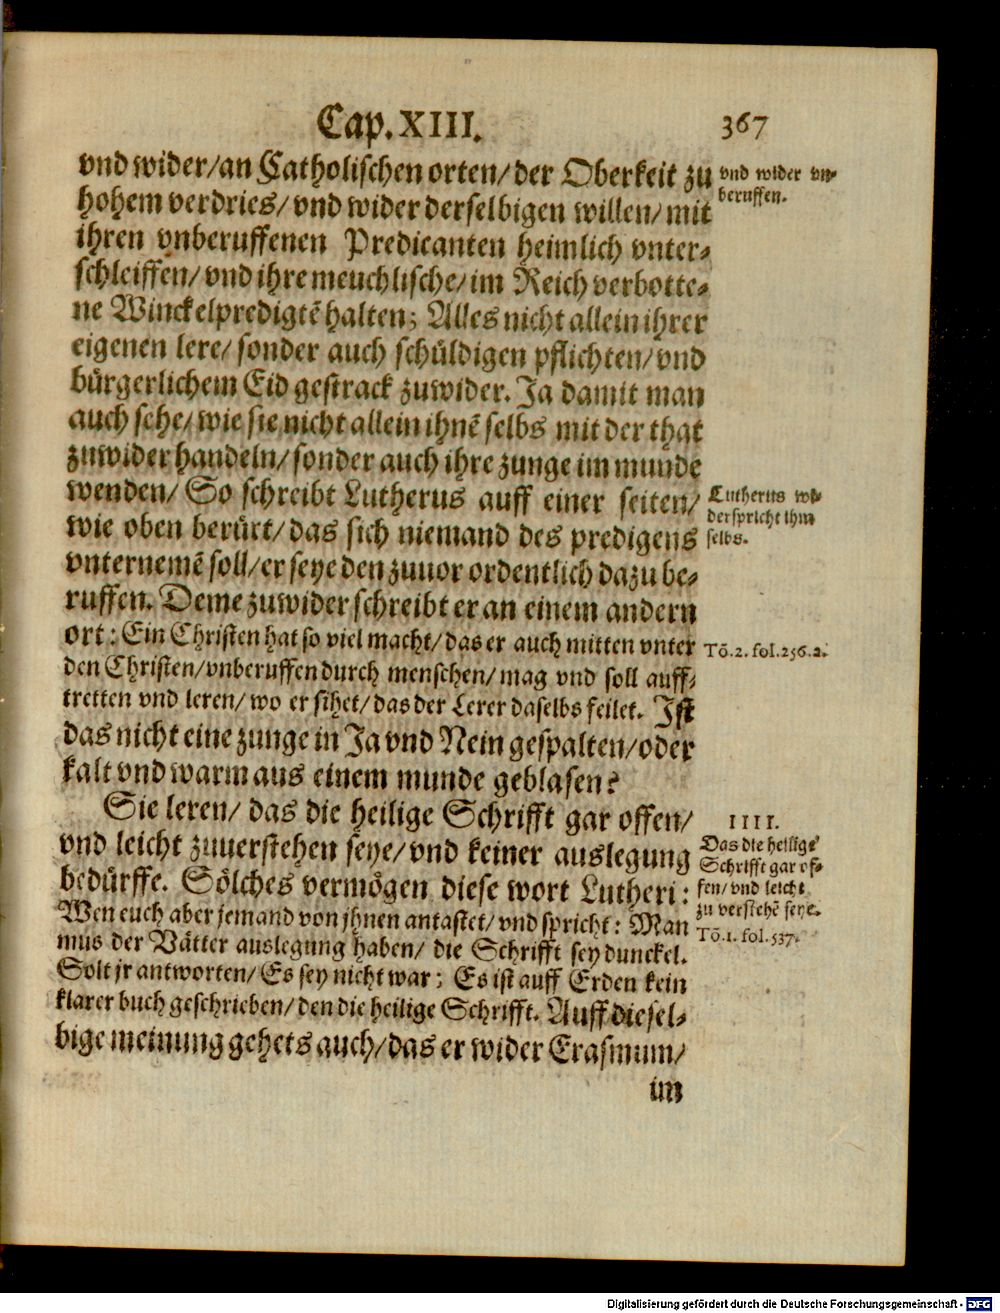 Cap. XIII. 367
vnd wider/an Catholischen orten/der Oberkeit zu
hohem verdries/vnd wider derselbigen willen/mit
ihren vnberuffenen Predicanten heimlich vnter-
schleiffen/vnd ihre meuchlische/im Reich verbotte-
ne Winckelpredigtē halten; Alles nicht allein ihrer
eigenen lere/sonder auch schüldigen pflichten/vnd
bürgerlichem Eid gestrack zuwider. Ja damit man
auch sehe/wie sie nicht allein ihnē selbs mit der that
zuwider handeln/sonder auch ihre zunge im munde
wenden/ So schreibt Lutherus auff einer seiten/
wie oben berürt/das sich niemand des predigens
vnternemē soll/er seye den zuuor ordentlich dazu be-
ruffen. Deme zuwider schreibt er an einem andern
ort: Ein Christen hat so viel macht/das er auch mitten vnter
den Christen/vnberuffen durch menschen/mag vnd soll auff-
tretten vnd leren/wo er sihet/das der Lerer daselbs feilet. Ist
das nicht eine zunge in Ja vnd Nein gespalten/oder
kalt vnd warm aus einem munde geblasen?
Sie leren/ das die heilige Schrifft gar offen/
vnd leicht zuuerstehen seye/vnd keiner auslegung
bedürffe. Sölches vermögen diese wort Lutheri:
Wen euch aber jemand von jhnen antastet/vnd spricht: Man
mus der Vätter auslegung haben/ die Schrifft sey dunckel.
Solt jr antworten/Es sey nicht war; Es ist auff Erden kein
klarer buch geschrieben/den die heilige Schrifft. Auff diesel-
bige meinung gehets auch/das er wider Erasmum/
im
vnd wider vn-
beruffen.
Lutherus wi-
derspricht ihm
selbs.
Tō.2. fol.256.2.
IIII.
Das die heilige
Schrifft gar of-
fen/vnd leicht
zu verstehē seye.
Tō.1. fol.537.
Digitalisierung gefördert durch die Deutsche Forschungsgemeinschaft - DFG